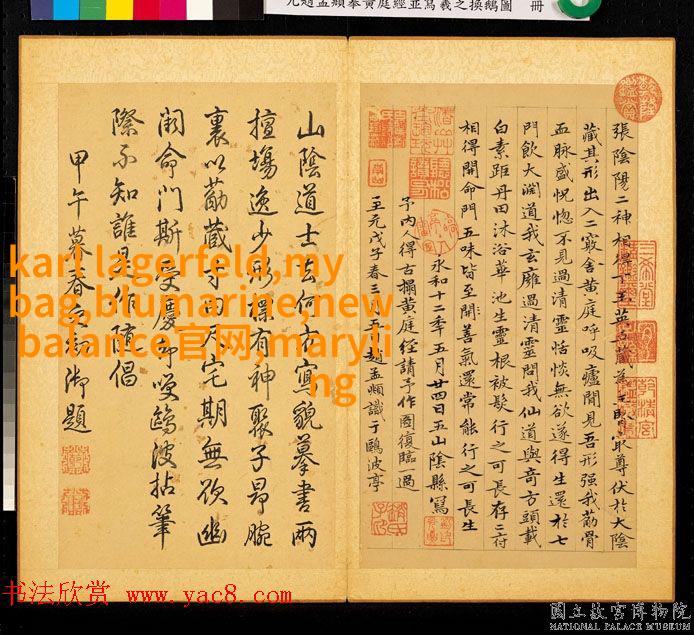 元趙孟頫摹黃庭經並寫羲之換鵝圖 冊
張陰陽二神相得下玉英
藏其形出入二竅舍黃庭呼吸廬間見吾形強我筋骨
血脉盛恍惚不見過清靈恬惔無欲遂得生還於七
門飲大淵道我玄廱過清靈問我仙道與奇方頭載
白素距丹田沐浴華池生靈根被髮行之可長存二府
相得開命門五味皆至開善氣還常能行之可長生
永和十二年五月廿四日五山陰縣寫
予內得古搨黃庭經請予作圖復臨一過
至元戊子春三五趙孟頫識于鷗波亭
山陰道士去何方寫貌摹書兩
擅場逸少形標有神聚子昂腕
裏以筋藏寸田尺宅期無欲幽
闕命門斯
際不知誰是作隨倡
甲午暮春御題
karl lagerfeld,my
bag,blumarine,new
balance官网,maryli
ng
书法欣赏 www.yac8.com
國立故宮博物院
NATIONAL PALACE MUSEUM